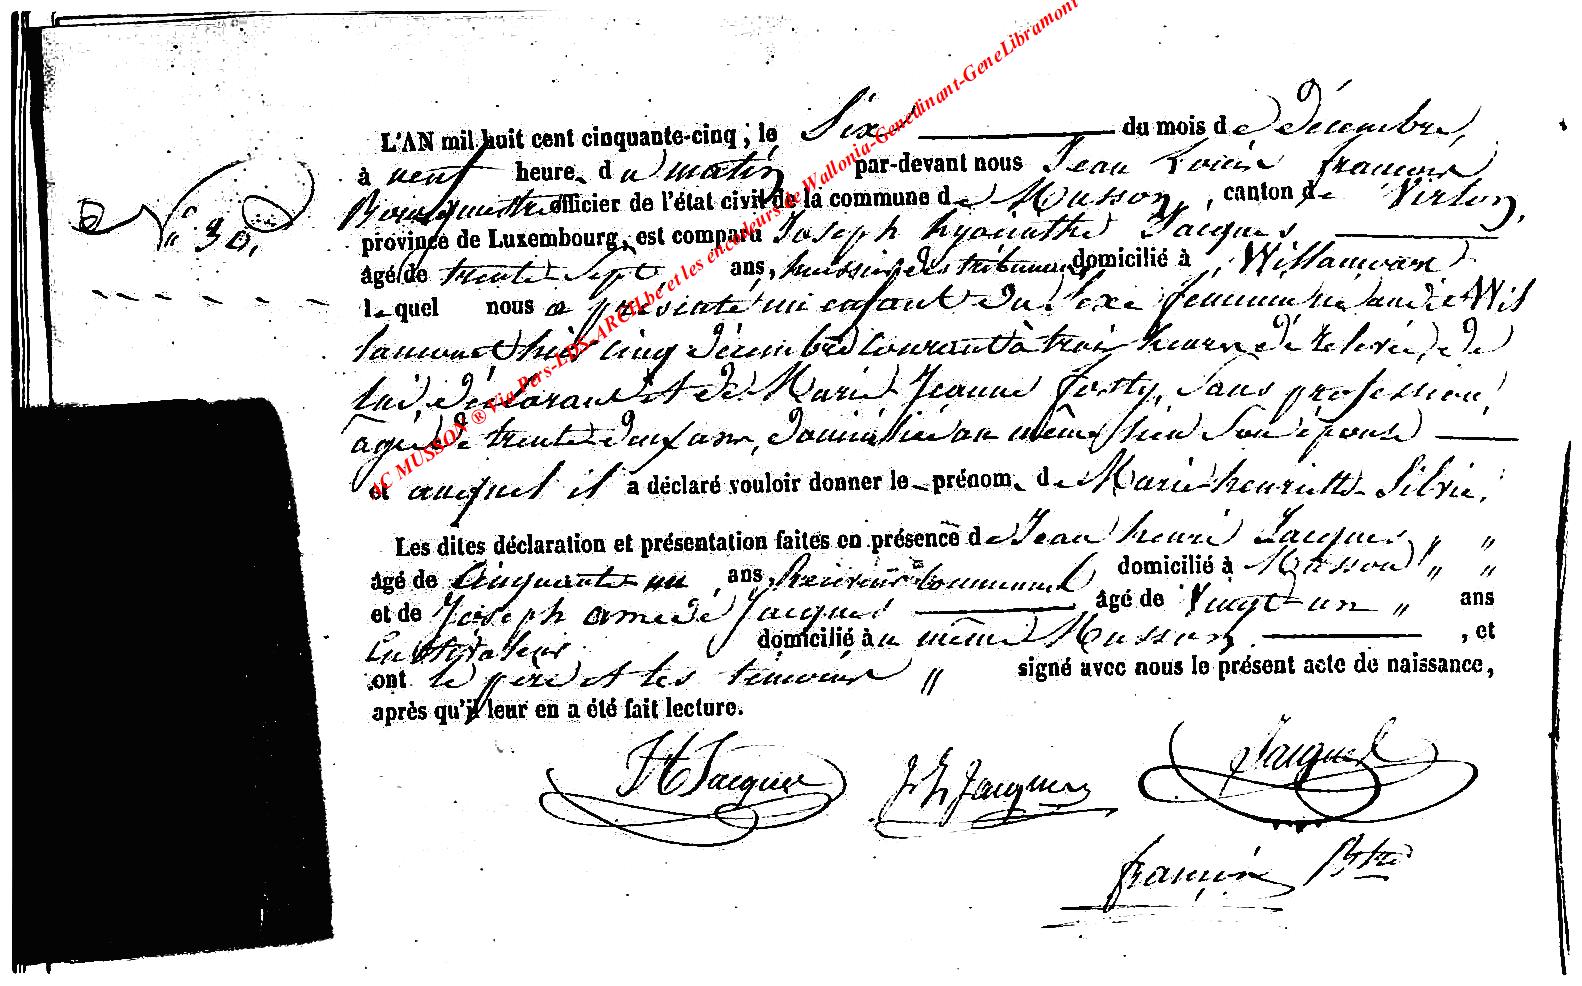 L'AN mil huit cent cinquante-cinq, le Six du mois de Décembre,
à neuf heure du matin par-devant nous Jean Louis françois
N° 30.
Bourgmestre officier de l'état civil de la commune de Musson, canton de Virton,
province de Luxembourg, est comparu Joseph hyacinthe Jacques
âgé de trente Sept ans, huissier des tribunaux domicilié à Willancourt
lequel nous a présenté un enfant du Sexe féminin, né au dit Wil
lancourt, hier cinq décembre courant à trois heures de relevée, de
lui, déclarant et de Marie Jeanne Forty, Sans profession,
âgée de trente deux ans, domiciliée au même lieu Son épouse
et auquel il a déclaré vouloir donner le prénom de Marie henriette Silvie.
Les dites déclaration et présentation faites en présence de Jean henri Jacques " "
âgé de Cinquante un ans, Receveur Communal domicilié à Musson " "
et de Joseph amedé Jacques âgé de Vingt-un " ans
Cultivateur domicilié au même Musson , et
ont le père et les témoins " signé avec nous le présent acte de naissance,
après qu'il leur en a été fait lecture.
JH Jacques J. H. Jacques Jacques
françois Bstre
JC MUSSON ® Via Pers-LDS-ARCH.be et les encodeurs de Wallonia-Genedinant-GeneLibramont